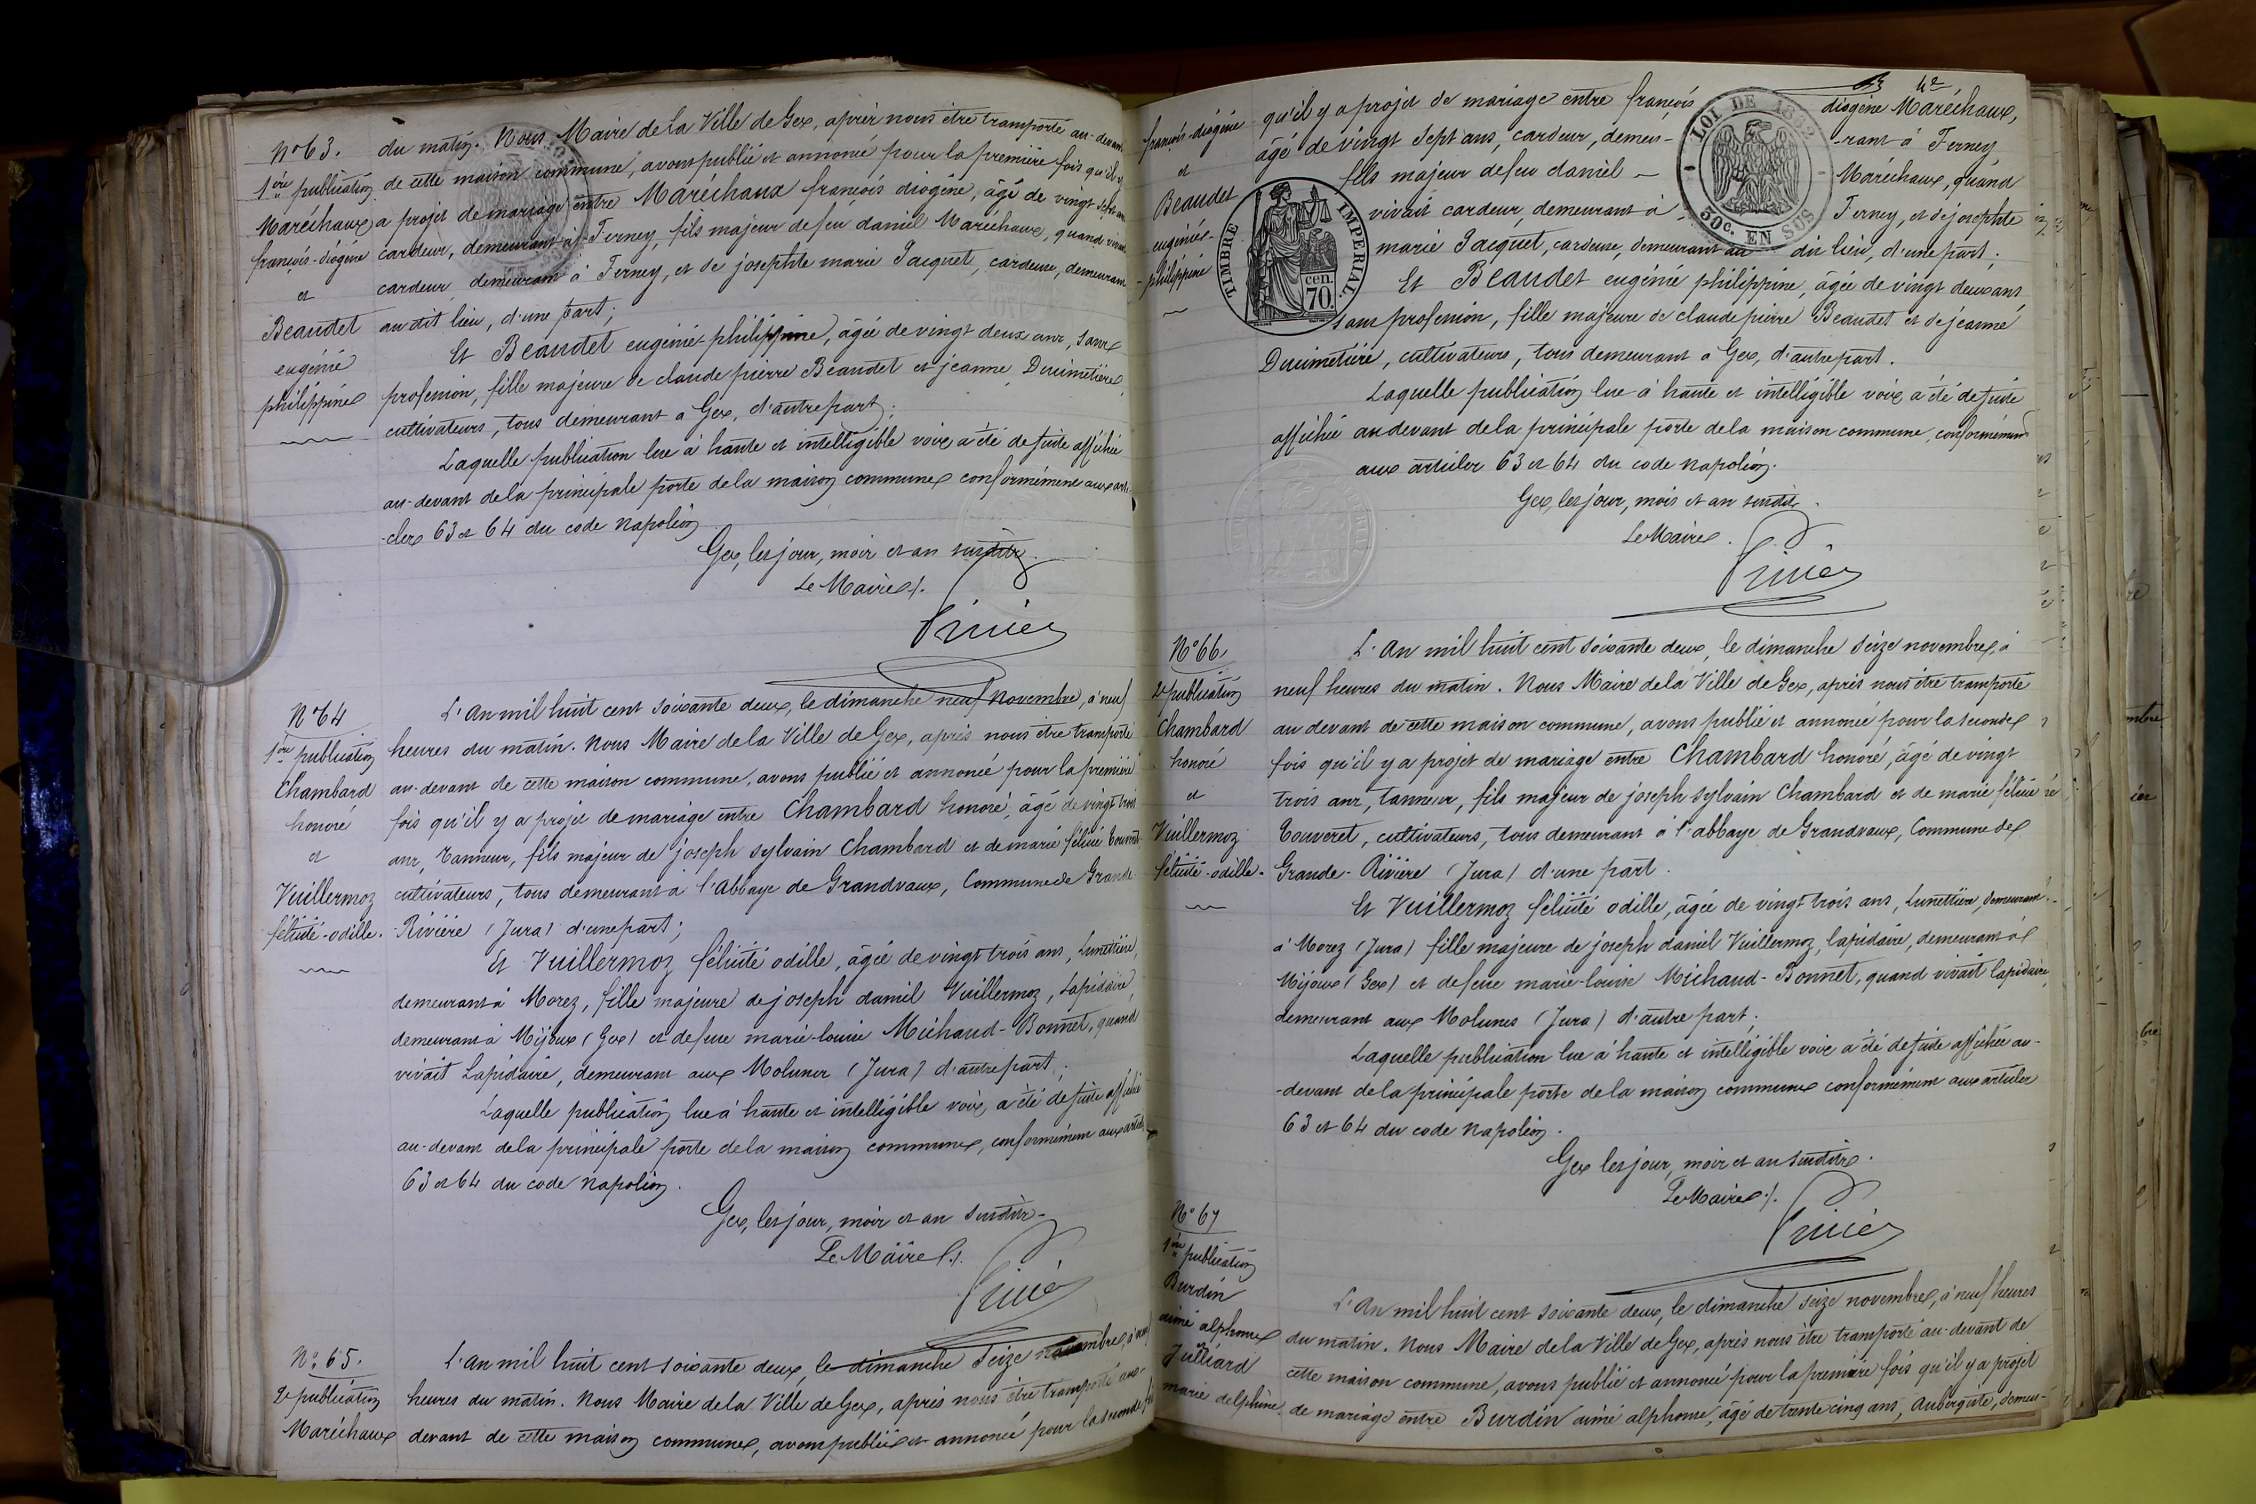 N° 63.
1ère publication
Maréchaux
françois-diogène
et
Beaudet
eugénie
philippine
du matin. Nous Maire de la Ville de Gex, après nous être transporté au-devant
de cette maison commune, avons publié et annoncé pour la première fois qu'il y
a projet de mariage entre Maréchaux françois diogène, âgé de vingt sept ans
cardeur, demeurant à Ferney, fils majeur de feu daniel Maréchaux, quand vivait
cardeur, demeurant à Ferney, et de josephte marie Jacquet, cardeuse, demeurant
au dit lieu, d'une part;
Et Beaudet eugénie philippine, âgée de vingt deux ans, sans
profession, fille majeure de claude pierre Beaudet et jeanne Ducimetière,
cultivateurs, tous demeurant à Gex, d'autre part;
Laquelle publication lue à haute et intelligible voix a été de suite affichée
au-devant de la principale porte de la maison commune conformément aux arti-
-cles 63 et 64 du code napoléon
Gex, les jour, mois et an susdits.
Le Maire /.
N° 64
1ère publication
Chambard
honoré
et
Vuillermoz
félicité-odille.
L'An mil huit cent soixante deux, le dimanche neuf Novembre, à neuf
heures du matin. Nous Maire de la Ville de Gex, après nous être transporté
au-devant de cette maison commune, avons publié et annoncé pour la première
fois qu'il y a projet de mariage entre Chambard honoré, âgé de vingt trois
ans, Tanneur, fils majeur de joseph sylvain Chambard et de marie félicité Bouveret
cultivateurs, tous demeurant à l'Abbaye de Grandvaux, Commune de Grande
-Rivière (Jura) d'une part;
Et Vuillermoz félicité odille, âgée de vingt trois ans, Lunettière,
demeurant à Morez, fille majeure de joseph daniel Vuillermoz, Lapidaire,
demeurant à Mijoux (Gex) et de feue marie-louise Michaud-Bonnet, quand
vivait Lapidaire, demeurant aux Molunes (Jura) d'autre part;
Laquelle publication lue à haute et intelligible voix, a été de suite affichée
au-devant de la principale porte de la maison commune, conformément aux articles
63 et 64 du code napoléon.
Gex, les jour, mois et an susdits.
Le Maire /.
N° 65.
2e publication
Maréchaux
L'an mil huit cent soixante deux, le dimanche seize novembre, à neuf
heures du matin. Nous Maire de la Ville de Gex, après nous être transporté au-
devant de cette maison commune, avons publié et annoncé pour la seconde fois
42
françois-diogène
et
Beaudet
eugénie-
-philippine
qu'il y a projet de mariage entre françois diogène Maréchaux,
âgé de vingt sept ans, cardeur, demeu- -rant à Ferney
fils majeur de feu daniel - Maréchaux, quand
vivait cardeur, demeurant à Ferney, et de josephte
marie Jacquet, cardeuse, demeurant au dit lieu, d'une part;
Et Beaudet eugénie philippine, âgée de vingt deux ans,
sans profession, fille majeure de claude pierre Beaudet et de jeanne
Ducimetière, cultivateurs, tous demeurant à Gex, d'autre part.
Laquelle publication lue à haute et intelligible voix a été de suite
affichée au devant de la principale porte de la maison commune, conformément
aux articles 63 et 64 du code napoléon.
Gex, les jour, mois et an susdits.
Le Maire.
LOI DE 1862
30c. EN SUS
TIMBRE IMPERIAL.
cen.
70.
N° 66.
2e publication
Chambard
honoré
et
Vuillermoz
félicité-odille.
L'An mil huit cent soixante deux, le dimanche seize novembre, à
neuf heures du matin. Nous Maire de la Ville de Gex, après nous être transporté
au devant de cette maison commune, avons publié et annoncé pour la seconde
fois qu'il y a projet de mariage entre Chambard honoré, âgé de vingt
trois ans, tanneur, fils majeur de joseph sylvain Chambard et de marie félicité
Bouveret, cultivateurs, tous demeurant à l'abbaye de Grandvaux, Commune de
Grande-Rivière (Jura) d'une part.
Et Vuillermoz félicité odille, âgée de vingt trois ans, Lunettière, demeurant
à Morez (Jura) fille majeure de joseph daniel Vuillermoz, lapidaire, demeurant à
Mijoux (Gex) et de feue marie-louise Michaud-Bonnet, quand vivait lapidaire,
demeurant aux Molunes (Jura) d'autre part.
Laquelle publication lue à haute et intelligible voix a été de suite affichée au-
-devant de la principale porte de la maison commune conformément aux articles
63 et 64 du code napoléon.
Gex les jour, mois et an susdits.
Le Maire /.
N° 67
1ère publication
Burdin
aimé alphonse
et
Juilliard
marie delphine.
L'An mil huit cent soixante deux, le dimanche seize novembre, à neuf heures
du matin. Nous Maire de la Ville de Gex, après nous être transporté au-devant de
cette maison commune, avons publié et annoncé pour la première fois qu'il y a projet
de mariage entre Burdin aimé alphonse, âgé de trente cinq ans, Aubergiste, demeu-